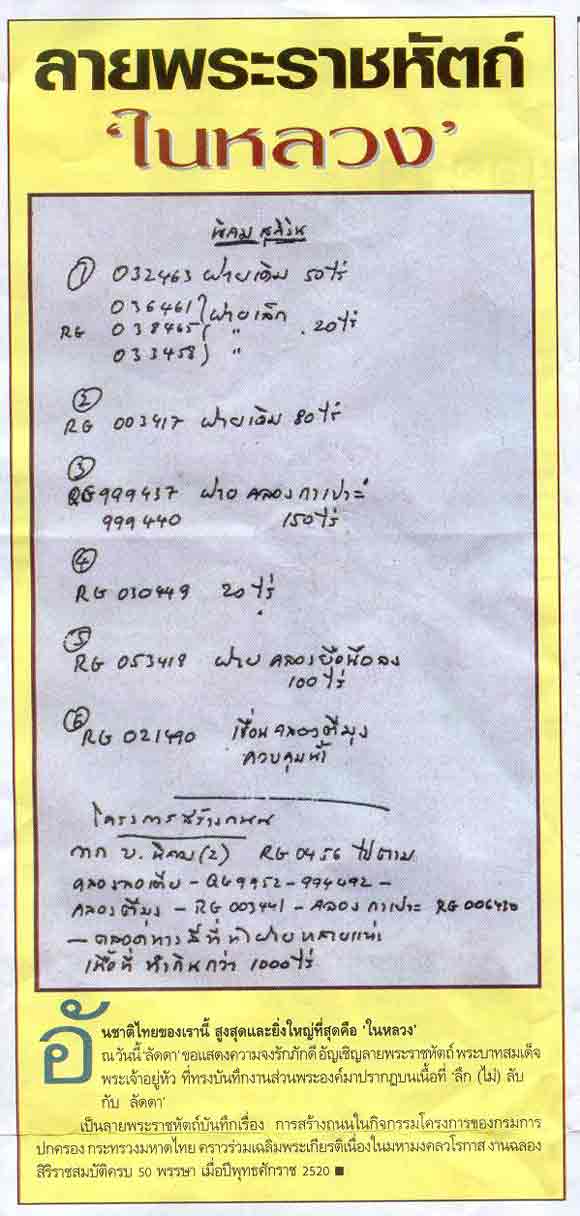 ลายพระราชหัตถ์
'ในหลวง'
นิคม สุคิริน
① 032463 ฝายเดิม 50 ไร่
036461 ฝายเล็ก
RG 038465 " 20 ไร่
033458 "
②
RG 003417 ฝายเดิม 80 ไร่
③
QG 999437 ฝาย คลอง กาเปาะ
999440 150 ไร่
④
RG 030449 20 ไร่
⑤
RG 053419 ฝาย คลอง
100 ไร่
⑥
RG 021490 เขื่อน คลองตีมุง
ควบคุมน้ำ
โครงการสร้างถนน
จาก บ. นิคม (2) RG 0456 ไปตาม
คลอง - QG 9952 - 994492 -
คลองตีมุง - RG 003441 - คลอง กาเปาะ RG 006430
- ตลอดทางมีที่ทำฝายหลายแห่ง
เนื้อที่ ทำกินกว่า 1000 ไร่
อันชาติไทยของเรานี้ สูงสุดและยิ่งใหญ่ที่สุดคือ 'ในหลวง'
ณ วันนี้ 'ลัดดา' ขอแสดงความจงรักภักดี อัญเชิญลายพระราชหัตถ์ พระบาทสมเด็จ
พระเจ้าอยู่หัว ที่ทรงบันทึกงานส่วนพระองค์มาปรากฏบนเนื้อที่ 'ลึก (ไม่) ลับ
กับ ลัดดา'
เป็นลายพระราชหัตถ์บันทึกเรื่อง การสร้างถนนในกิจกรรมโครงการของกรมการ
ปกครอง กระทรวงมหาดไทย คราวร่วมเฉลิมพระเกียรติเนื่องในมหามงคลวโรกาส งานฉลอง
สิริราชสมบัติครบ 50 พรรษา เมื่อปีพุทธศักราช 2520 ■